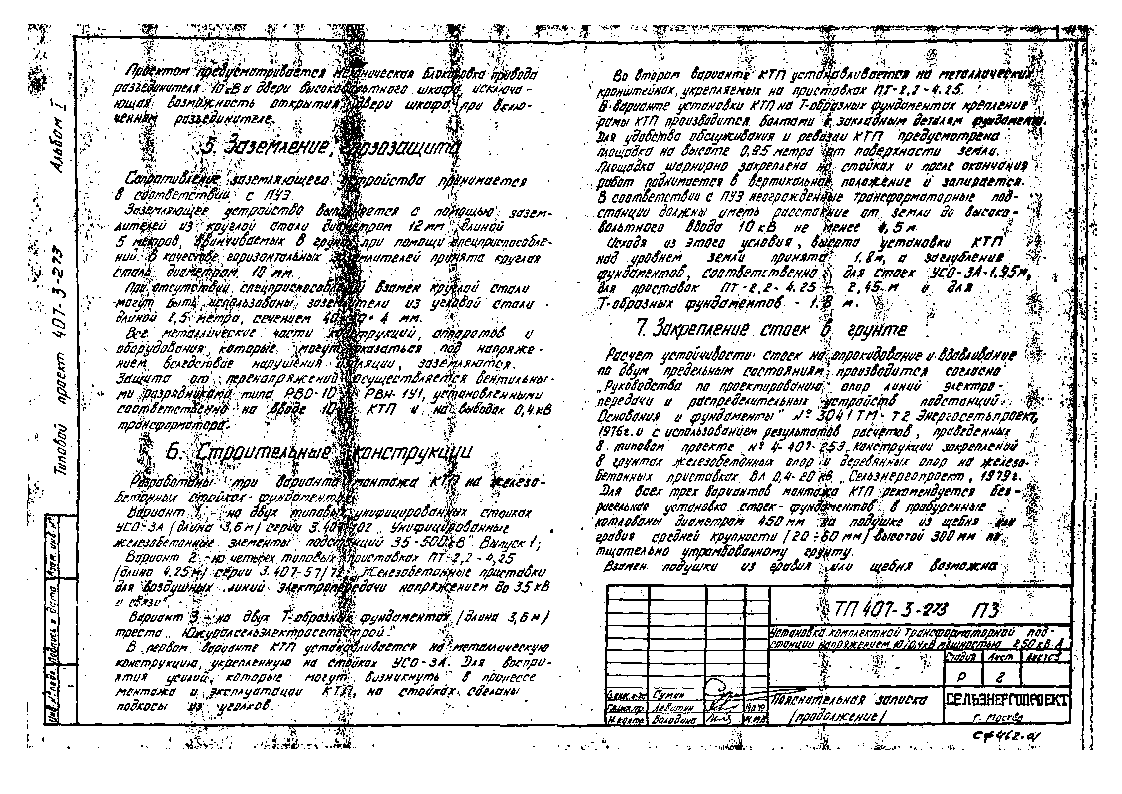 Проектом предусматривается механическая блокировка привода
разъединителя 10 кВ и двери высоковольтного шкафа, исключа-
ющая возможность открытия двери шкафа при вклю-
ченном разъединителе.
5. Заземление, грозозащита
Сопротивление заземляющего устройства принимается
в соответствии с ПУЭ.
Заземляющее устройство выполняется с помощью зазем-
лителей из круглой стали диаметром 12 мм длиной
5 метров, ввинчиваемых в грунт при помощи спецприспособле-
ний. В качестве горизонтальных заземлителей принята круглая
сталь диаметром 10 мм.
При отсутствии спецприспособлений взамен круглой стали
могут быть использованы заземлители из угловой стали
длиной 2,5 метра, сечением 40 × 40 × 4 мм.
Все металлические части конструкций, аппаратов и
оборудования, которые могут оказаться под напряже-
нием вследствие нарушения изоляции, заземляются.
Защита от перенапряжений осуществляется вентильны-
ми разрядниками типа РВО-10 и РВН-1У1, установленными
соответственно на вводе 10 кВ КТП и на выводах 0,4 кВ
трансформатора.
6. Строительные конструкции
Разработаны три варианта монтажа КТП на железо-
бетонных стойках-фундаментах:
Вариант 1 - на двух типовых унифицированных стойках
УСО-3А (длина 3,6 м) серии 3.407-102 „Унифицированные
железобетонные элементы подстанций 35-500 кВ" Выпуск 1;
Вариант 2 - на четырех типовых приставках ПТ-2,2-4,25
(длина 4,25 м) серии 3.407-57/72 „Железобетонные приставки
для воздушных линий электропередачи напряжением до 35 кВ
и связи".
Вариант 3 - на двух Т-образных фундаментах (длина 3,6 м)
треста „Южуралсельэлектросетьстрой".
В первом варианте КТП устанавливается на металлическую
конструкцию, укрепленную на стойках УСО-3А. Для воспри-
ятия усилий, которые могут возникнуть в процессе
монтажа и эксплуатации КТП, на стойках сделаны
подкосы из уголков.
Во втором варианте КТП устанавливается на металлических
кронштейнах, укрепляемых на приставках ПТ-2,2-4.25.
В варианте установки КТП на Т-образных фундаментах крепление
рамы КТП производится болтами к закладным деталям фундамента.
Для удобства обслуживания и ревизии КТП предусмотрена
площадка на высоте 0,95 метра от поверхности земли.
Площадка шарнирно закреплена на стойках и после окончания
работ поднимается в вертикальное положение и запирается.
В соответствии с ПУЭ неогражденные трансформаторные под-
станции должны иметь расстояние от земли до высоко-
вольтного ввода 10 кВ не менее 4,5 м
Исходя из этого условия, высота установки КТП
над уровнем земли принята 1.8 м, а заглубление
фундаментов, соответственно, для стоек УСО-3А-1.95м,
для приставок ПТ-2,2-4.25 - 2,45 м и для
Т-образных фундаментов - 1.8 м.
7. Закрепление стоек в грунте
Расчет устойчивости стоек на опрокидование и вдавливание
по двум предельным состояниям производится согласно
„Руководства по проектированию опор линий электро-
передачи и распределительных устройств подстанций.
Основания и фундаменты" № 3041 ТМ-Т2 Энергосетьпроект,
1976г. и с использованием результатов расчётов, приведенных
в типовом проекте № 4-407-253 „Конструкции закреплений
в грунтах железобетонных опор и деревянных опор на железо-
бетонных приставках ВЛ 0,4-20 кВ", Сельэнергопроект, 1979г.
Для всех трех вариантов монтажа КТП рекомендуется без-
ригельная установка стоек-фундаментов в пробуренные
котлованы диаметром 450 мм на подушке из щебня или
гравия средней крупности (20÷60 мм) высотой 300 мм по
тщательно утрамбованному грунту.
Взамен подушки из гравия или щебня возможна
Типовой проект 407-3-273 Альбом I
Инв.№ подл. Подпись и дата Взам. инв.№
ТП 407-3-273 ПЗ
Установка комплектной трансформаторной под-
станции напряжением 10/0,4 кВ мощностью 250 кВ·А
Стадия Лист Листов
Р 2
Сумин
Левитин
Н.контр. Володина
Пояснительная записка
(продолжение)
СЕЛЬЭНЕРГОПРОЕКТ
г. Москва
СФ 462-01